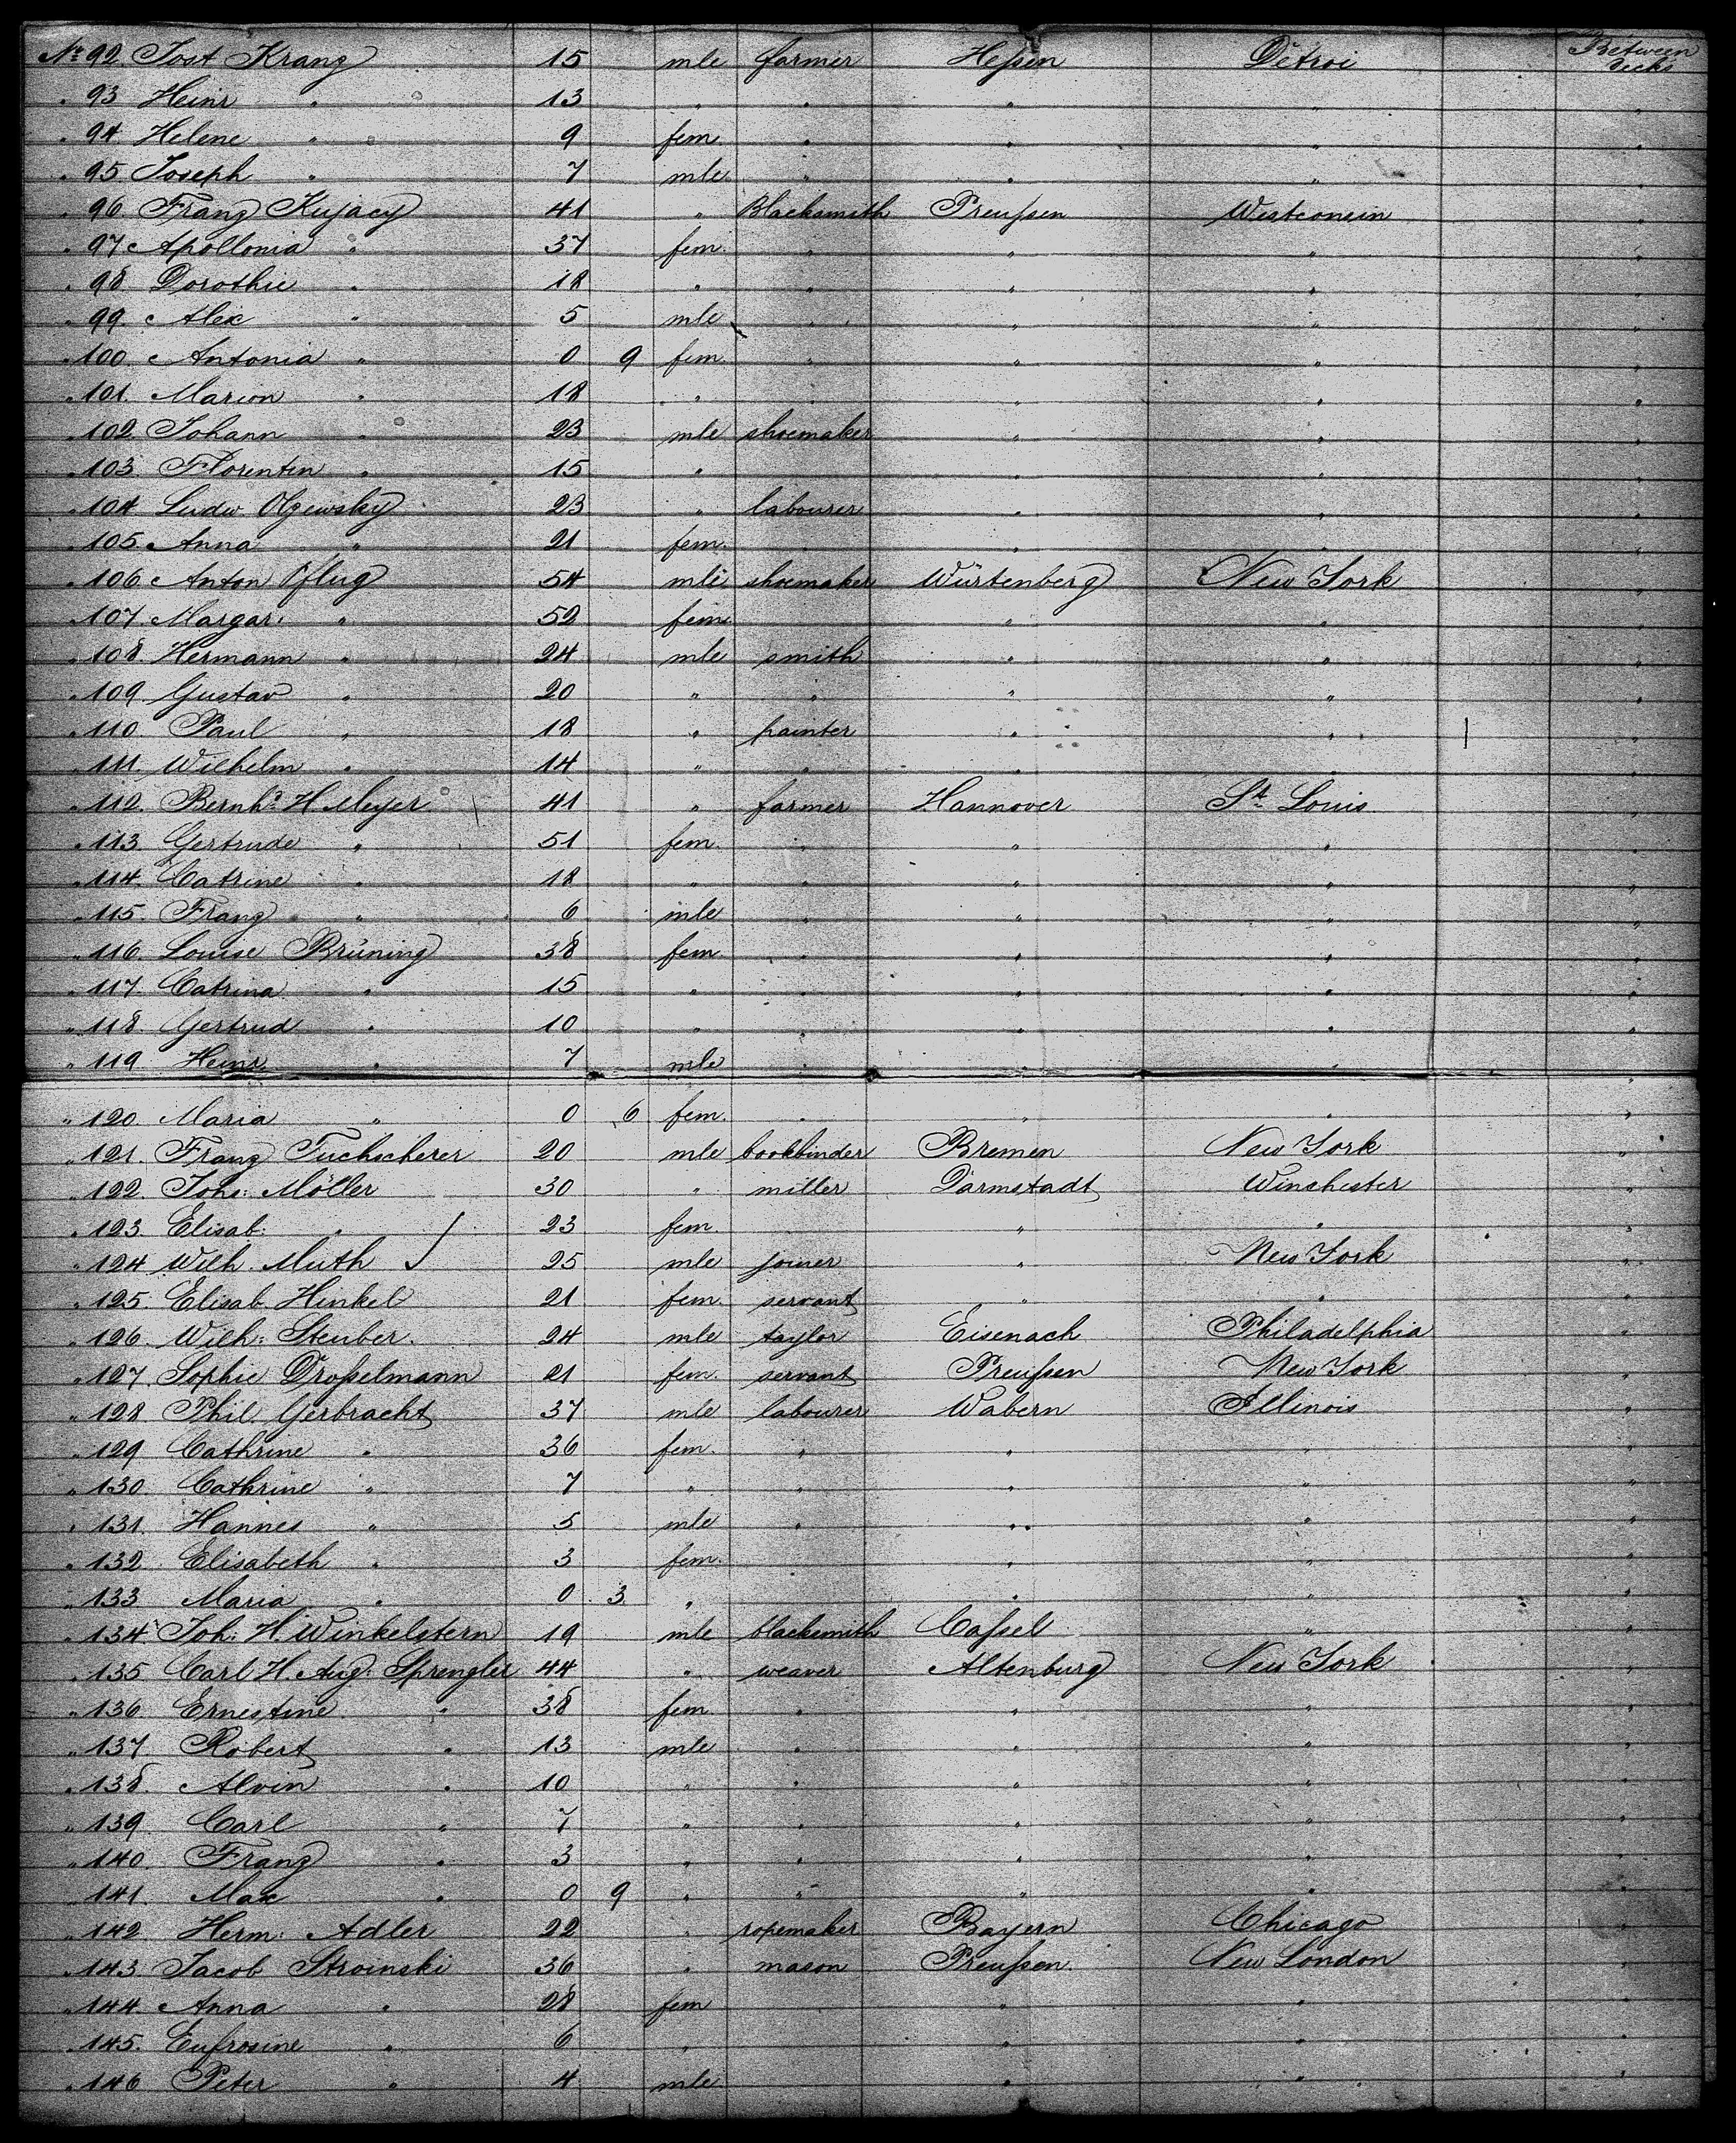 No 92 Jost Kranz 15 mle farmer Hessen Detroi Between decks
" 93 Heinr " 13 " " " " "
" 94 Helene " 9 fem " " " "
" 95 Joseph " 7 mle " " " "
" 96 Franz Kujacy 41 " Blacksmith Preussen Wistconsin "
" 97 Apollonia " 37 fem. " " " "
" 98 Dorothie " 18 " " " " "
" 99. Alex " 5 mle " " " "
" 100. Antonia " 0 9 fem. " " " "
" 101. Marion " 18 " " " "
" 102 Johann " 23 mle shoemaker " " "
" 103. Florentin " 15 " " " "
" 104 Ludw. Olzewsky 23 " labourer " " "
" 105. Anna " 21 fem. " " " "
" 106 Anton Pflug 54 mle shoemaker Würtenberg New York "
" 107. Margar: " 52 fem. " " "
" 108 Hermann " 24 mle smith " " "
" 109. Gustav " 20 " " " " "
" 110. Paul " 18 " painter " " "
" 111. Wilhelm " 14 " " " " "
" 112. Bernhd. H. Meyer 41 " farmer Hannover St. Louis "
" 113. Gertrude " 51 fem. " " " "
" 114. Catrine " 18 " " " " "
" 115. Franz " 6 mle " " " "
" 116. Louise Brüning 38 fem " " " "
" 117. Catrina " 15 " " " " "
" 118. Gertrud " 10 " " " " "
" 119 Heinr. " 7 mle " " " "
" 120. Maria " 0 6 fem. " " " "
" 121. Franz Tuchscherer 20 mle bookbinder Bremen New York "
" 122. Johs: Möller 30 " miller Darmstadt Winchester "
" 123. Elisab: " 23 fem. " " "
" 124 Wilh. Muth 25 mle joiner " New York "
" 125. Elisab. Henkel 21 fem. servant " " "
" 126. Wilh: Steuber. 24 mle taylor Eisenach Philadelphia "
" 127. Sophie Drosselmann 21 fem. servant Preussen New York "
" 128 Phil. Gerbracht 37 mle labourer Wabern Illinois "
" 129 Cathrine " 36 fem. " " " "
" 130. Cathrine " 7 " " " " "
" 131. Hannes " 5 mle " " " "
" 132. Elisabeth " 3 fem. " " "
" 133 Maria " 0 3 " " " "
" 134 Joh: H. Winkelstern 19 mle blacksmith Cassel " "
" 135 Carl H. Aug: Sprengler 44 " weaver Altenburg New York "
" 136. Ernestine " 38 fem. " " " "
" 137. Robert " 13 mle " " " "
" 138. Alvin " 10 " " " " "
" 139. Carl " 7 " " " " "
" 140. Franz " 3 " " " " "
" 141. Max " 0 9 " " " " "
" 142 Herm: Adler 22 " ropemaker Bayern Chicago "
" 143 Jacob Stroinski 36 " mason Preussen. New London "
" 144. Anna " 28 fem " " "
" 145. Eufrosine " 6 " " " "
" 146 Peter " 4 mle " " "